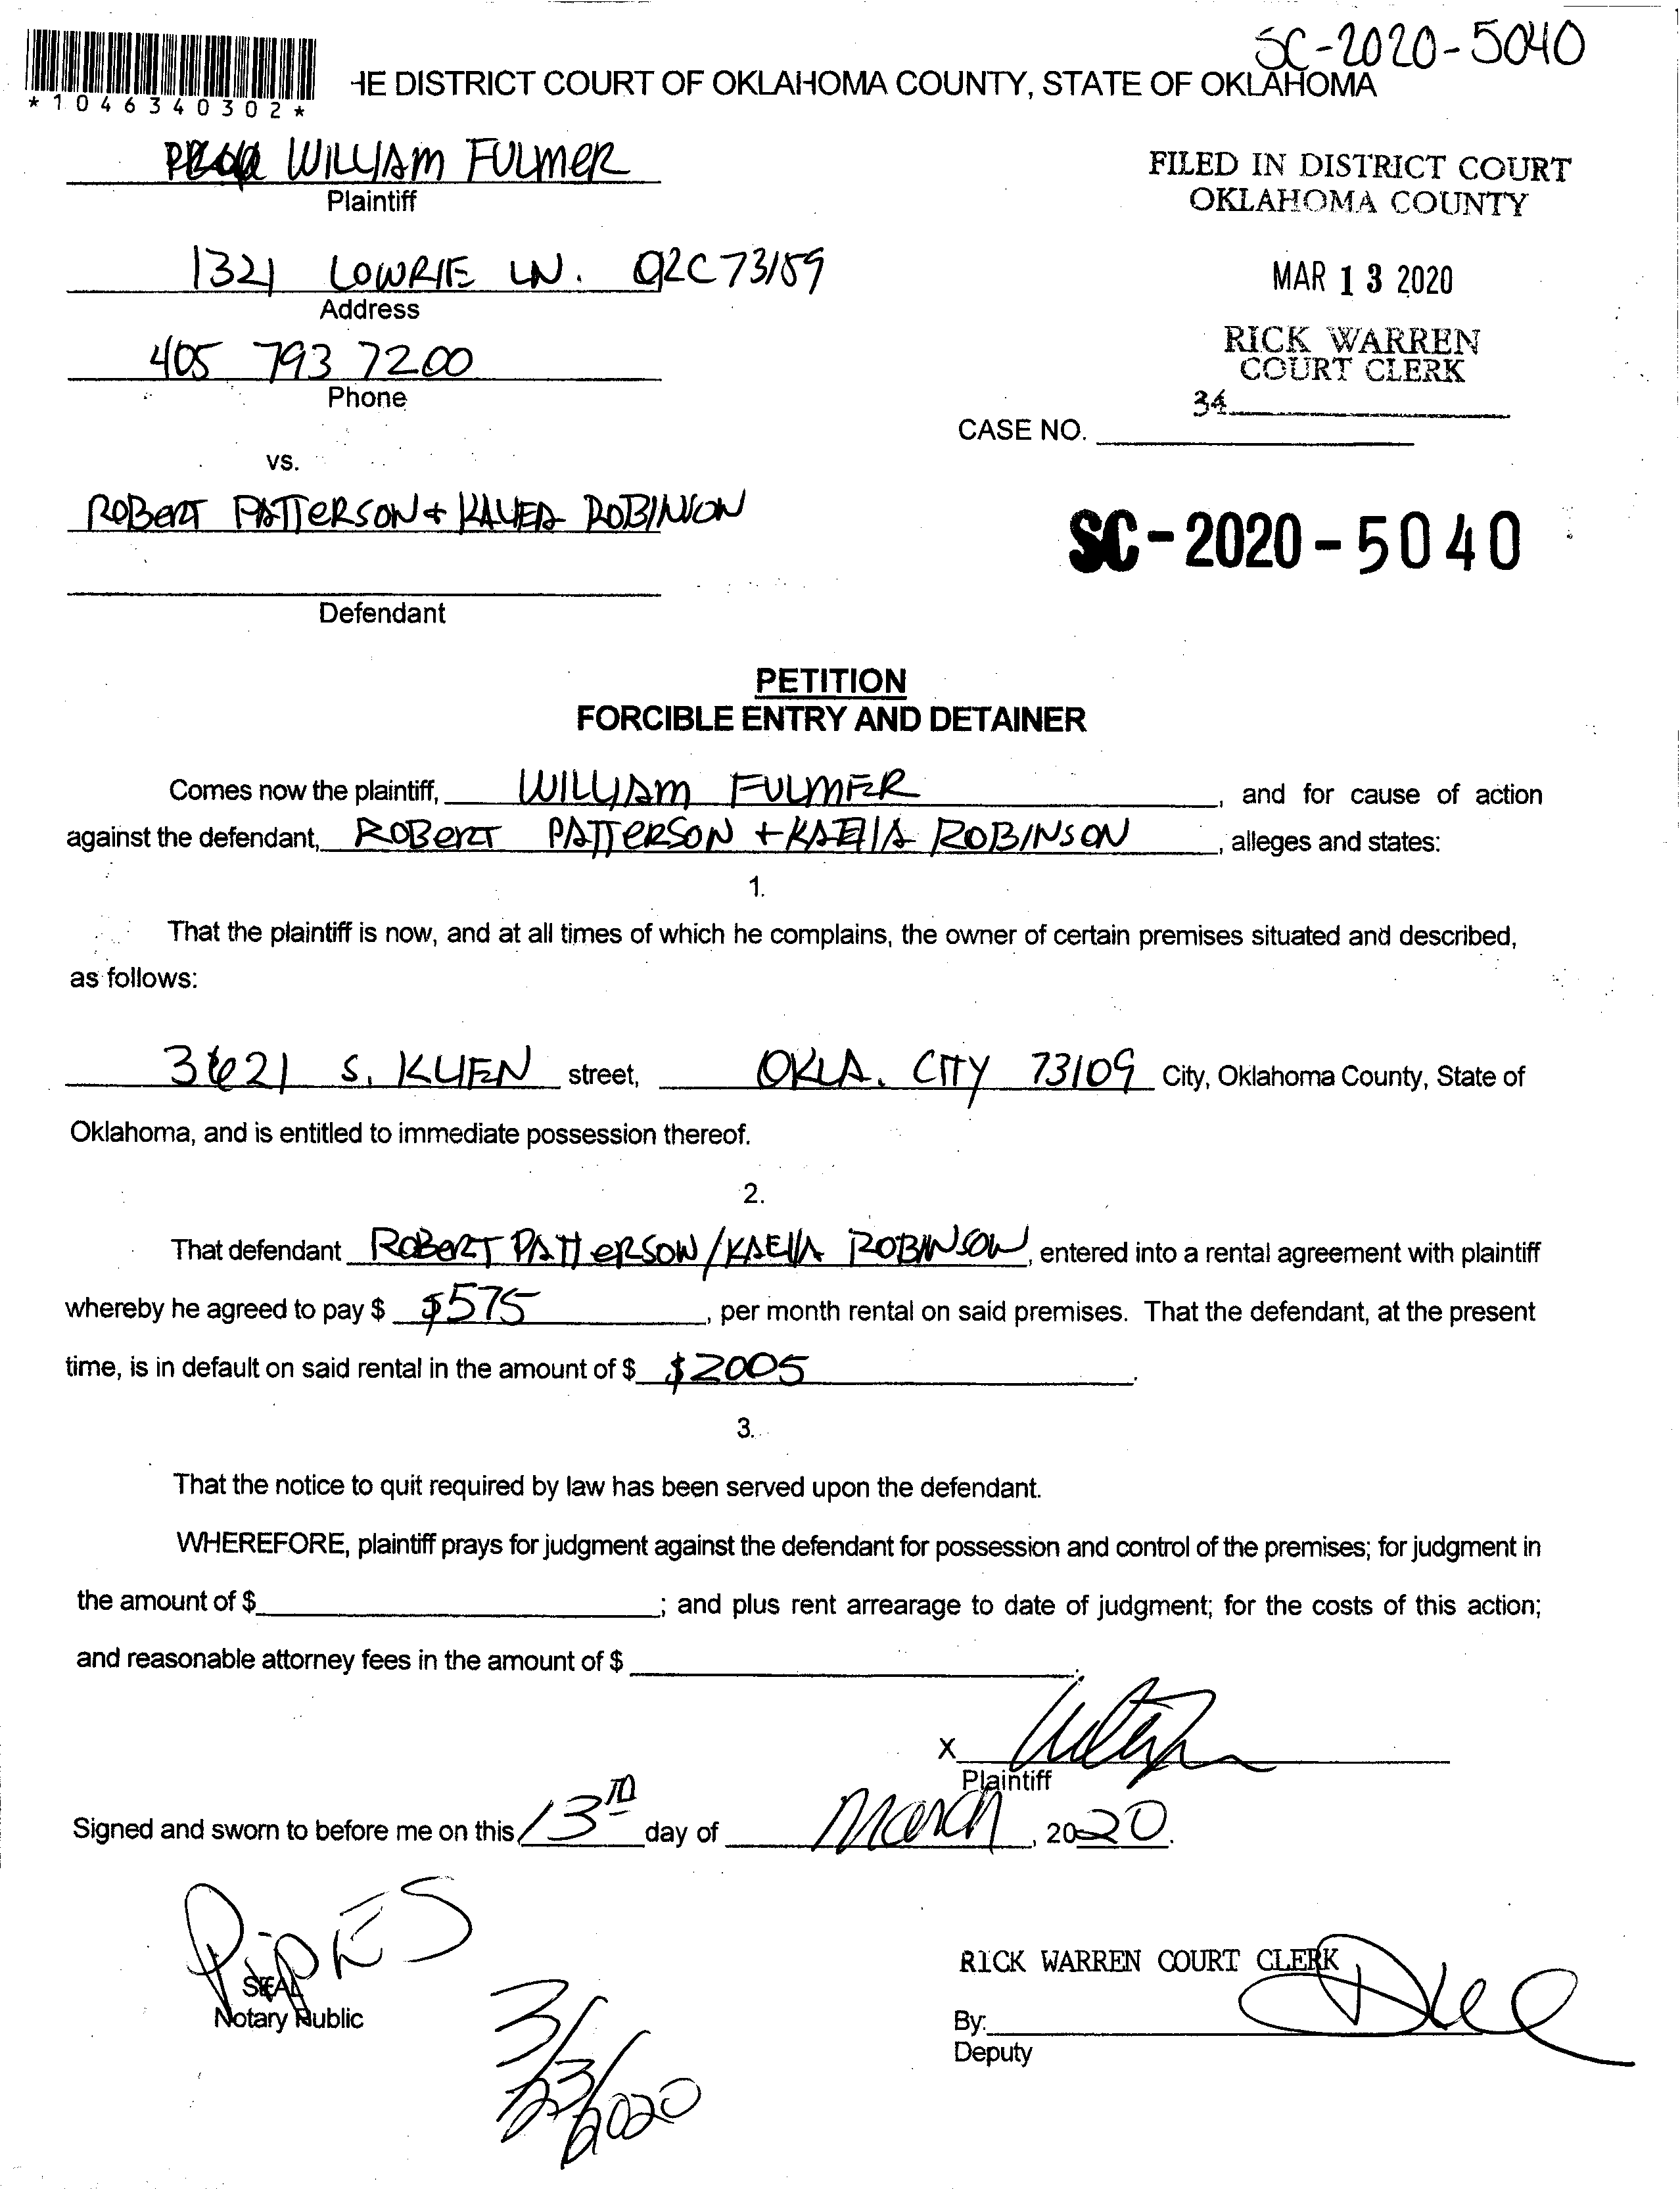 SC-2020-5040
*1046340302*
HE DISTRICT COURT OF OKLAHOMA COUNTY, STATE OF OKLAHOMA
WILLIAM FULMER
Plaintiff
FILED IN DISTRICT COURT
OKLAHOMA COUNTY
1321 LOWRIE LN. 73159
Address
MAR 13 2020
405 793 7200
Phone
RICK WARREN
COURT CLERK
34
CASE NO.
vs.
ROBERT PATTERSON + ROBINSON
SC-2020-5040
Defendant
PETITION
FORCIBLE ENTRY AND DETAINER
Comes now the plaintiff, WILLIAM FULMER, and for cause of action
against the defendant, ROBERT PATTERSON + KAEIIA ROBINSON, alleges and states:
1.
That the plaintiff is now, and at all times of which he complains, the owner of certain premises situated and described,
as follows:
3621 S. KLIEN street, OKLA. CITY 73109 City, Oklahoma County, State of
Oklahoma, and is entitled to immediate possession thereof.
2.
That defendant ROBERT PATTERSON/KAEIIA ROBINSON, entered into a rental agreement with plaintiff
whereby he agreed to pay $ $575, per month rental on said premises. That the defendant, at the present
time, is in default on said rental in the amount of $ $2005.
3.
That the notice to quit required by law has been served upon the defendant.
WHEREFORE, plaintiff prays for judgment against the defendant for possession and control of the premises; for judgment in
the amount of $ ; and plus rent arrearage to date of judgment; for the costs of this action;
and reasonable attorney fees in the amount of $ .
X
Plaintiff
Signed and sworn to before me on this 13TH day of March, 2020.
PipKES
SEAL
Notary Public
3/23/2020
RICK WARREN COURT CLERK
By:
Deputy